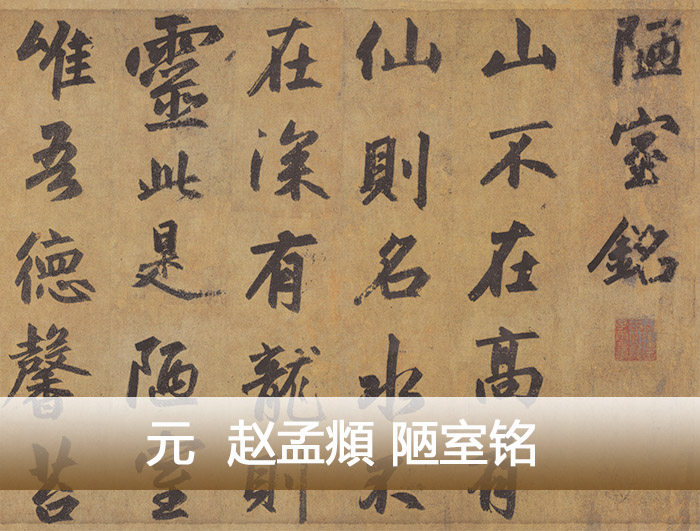 陋室銘
山不在高有
仙則名水不
在深有龍則
靈此是陋室
唯吾德馨苔
元 赵孟頫 陋室铭